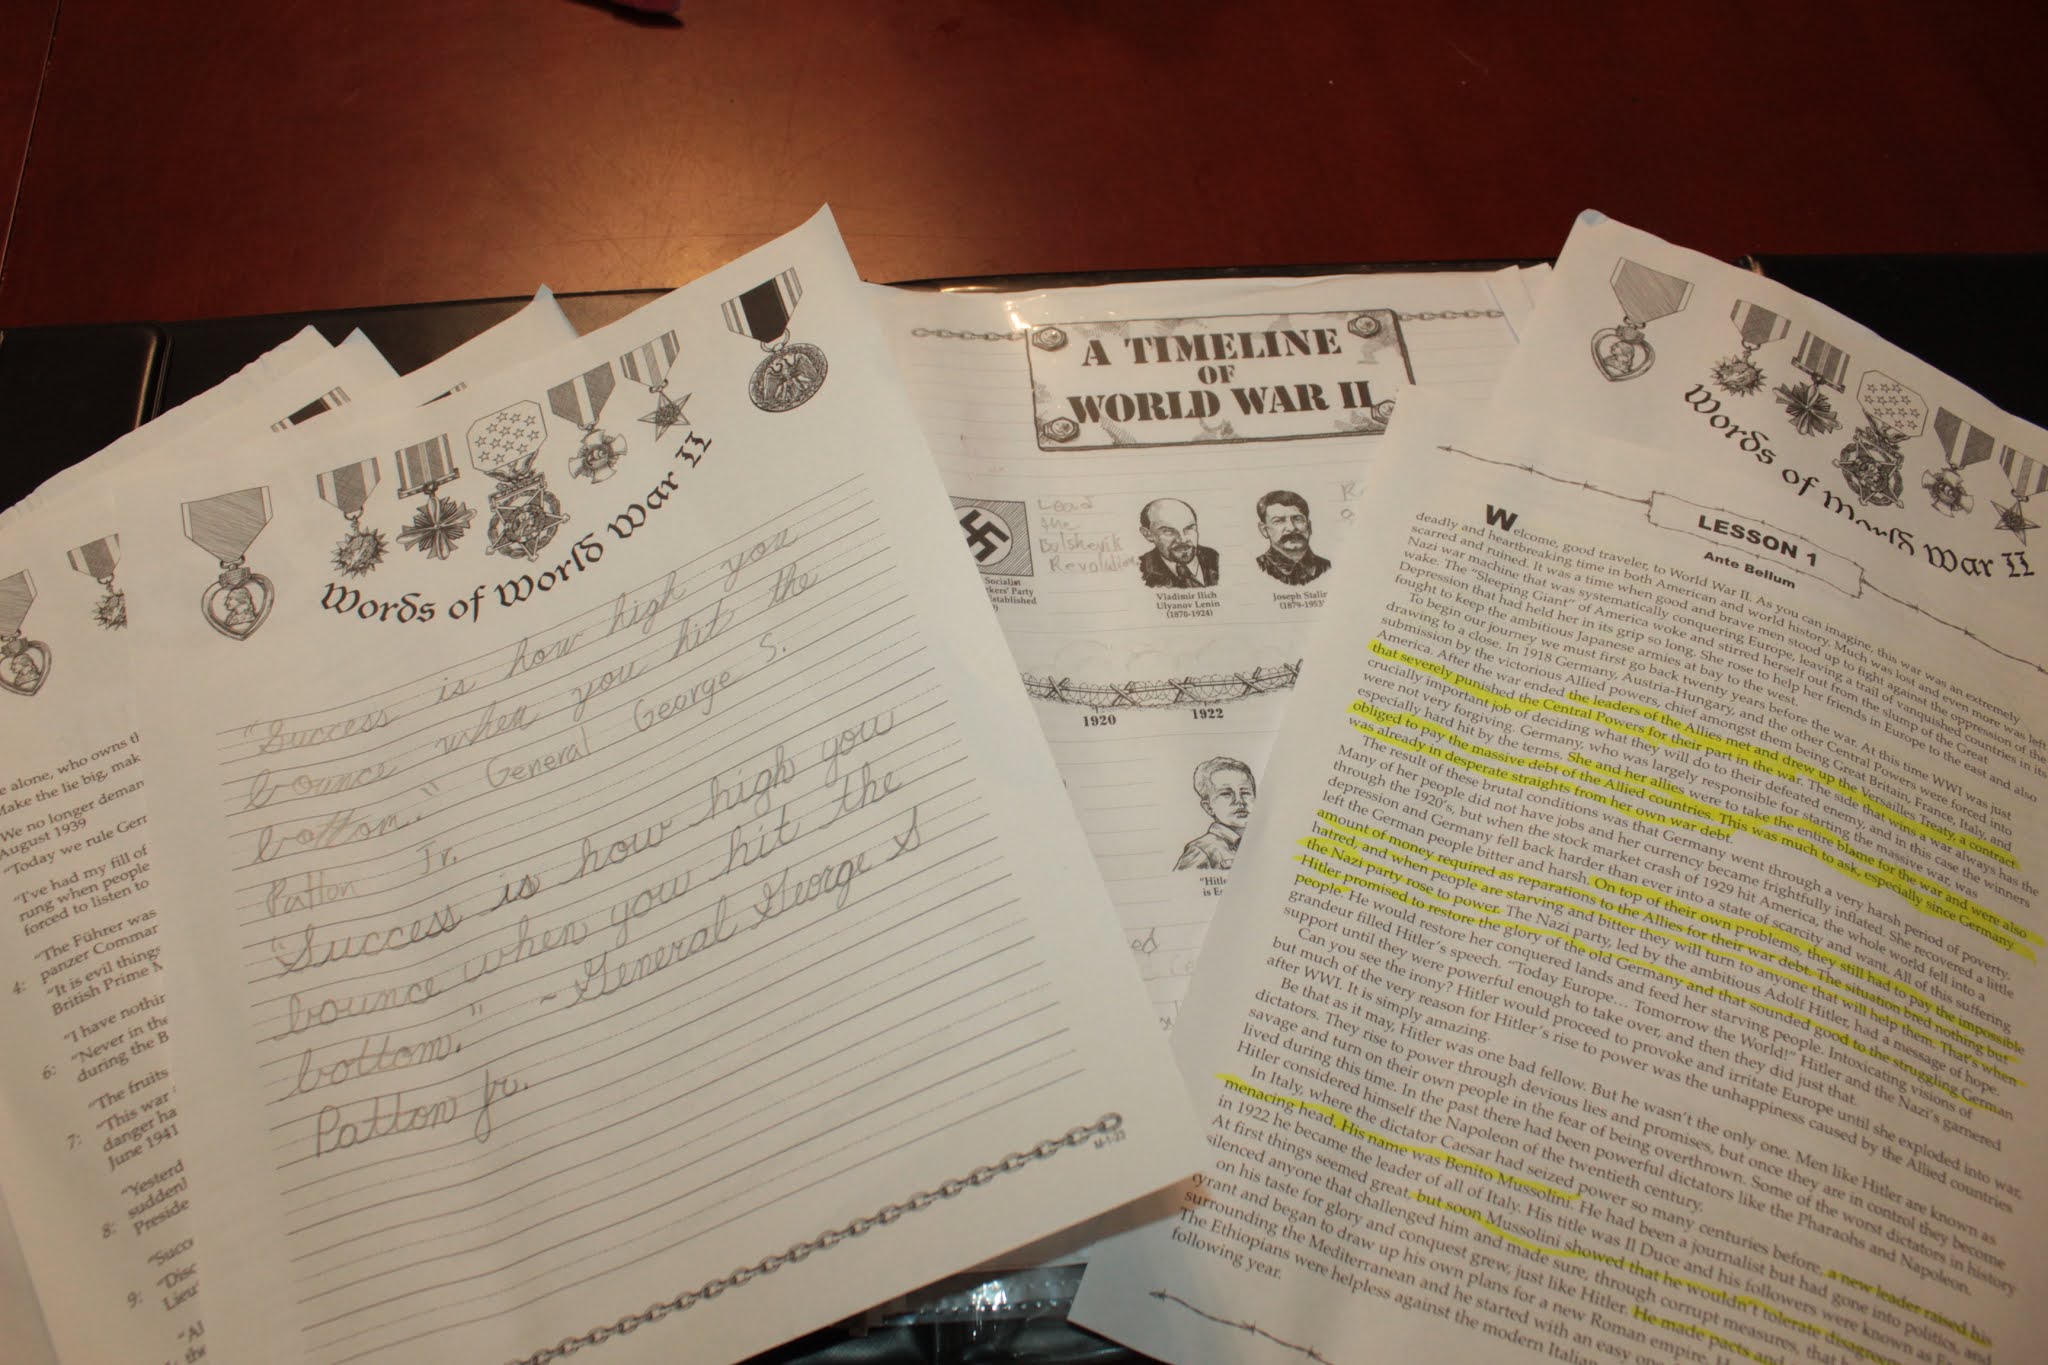 e alone, who owns th
Make the lie big, mak
We no longer deman
August 1939
"Today we rule Ger
"I've had my fill of
rung when people
forced to listen to
"The Führer was
panzer Commar
4: "It is evil things
British Prime M
"I have nothin
"Never in the
6: during the B
"The fruits
"This war
7: danger ha
June 1941
"Yesterd
suddenl
8: Preside
"Succ
"Disc
9: Lieu
"Al
the
Words of World War II
"Success is how high you
bounce when you hit the
bottom." General George S.
Patton Jr.
"Success is how high you
bounce when you hit the
bottom." ~General George S
Patton Jr.
M-1-23
A TIMELINE
OF
WORLD WAR II
Lead
the
Bolshevik
Revolution
Socialist
rkers' Party
stablished
Vladimir Ilich
Ulyanov Lenin
(1870-1924)
Joseph Stalin
(1879-1953)
1920 1922
"Hitle
is E
Words of World War II
LESSON 1
Ante Bellum
Welcome, good traveler, to World War II. As you can imagine, this war was an extremely
deadly and heartbreaking time in both American and world history. Much was lost and even more was left
scarred and ruined. It was a time when good and brave men stood up to fight against the oppression of the
Nazi war machine that was systematically conquering Europe, leaving a trail of vanquished countries in its
wake. The "Sleeping Giant" of America woke and stirred herself out from the slump of the Great
Depression that had held her in its grip so long. She rose to help her friends in Europe to the east and also
fought to keep the ambitious Japanese armies at bay to the west.
To begin our journey we must first go back twenty years before the war. At this time WWI was just
drawing to a close. In 1918 Germany, Austria-Hungary, and the other Central Powers were forced into
submission by the victorious Allied powers, chief amongst them being Great Britain, France, Italy, and
America. After the war ended the leaders of the Allies met and drew up the Versailles Treaty, a contract
that severely punished the Central Powers for their part in the war. The side that wins a war always has the
crucially important job of deciding what they will do to their defeated enemy, and in this case the winners
were not very forgiving. Germany, who was largely responsible for starting the massive war, was
especially hard hit by the terms. She and her allies were to take the entire blame for the war and were also
obliged to pay the massive debt of the Allied countries. This was much to ask, especially since Germany
was already in desperate straights from her own war debt.
The result of these brutal conditions was that Germany went through a very harsh period of poverty.
Many of her people did not have jobs and her currency became frightfully inflated. She recovered a little
through the 1920's, but when the stock market crash of 1929 hit America, the whole world fell into a
depression and Germany fell back harder than ever into a state of scarcity and want. All of this suffering
left the German people bitter and harsh. On top of their own problems, they still had to pay the impossible
amount of money required as reparations to the Allies for their war debt. The situation bred nothing but
hatred, and when people are starving and bitter they will turn to anyone that will help them. That's when
the Nazi party rose to power. The Nazi party, led by the ambitious Adolf Hitler, had a message of hope.
Hitler promised to restore the glory of the old Germany and that sounded good to the struggling German
people. He would restore her conquered lands and feed her starving people. Intoxicating visions of
grandeur filled Hitler's speech. "Today Europe... Tomorrow the World!" Hitler and the Nazi's garnered
support until they were powerful enough to take over, and then they did just that.
Can you see the irony? Hitler would proceed to provoke and irritate Europe until she exploded into war,
but much of the very reason for Hitler's rise to power was the unhappiness caused by the Allied countries
after WWI. It is simply amazing.
Be that as it may, Hitler was one bad fellow. But he wasn't the only one. Men like Hitler are known as
dictators. They rise to power through devious lies and promises, but once they are in control they become
savage and turn on their own people in the fear of being overthrown. Some of the worst dictators in history
lived during this time. In the past there had been powerful dictators like the Pharaohs and Napoleon.
Hitler considered himself the Napoleon of the twentieth century.
In Italy, where the dictator Caesar had seized power so many centuries before, a new leader raised his
menacing head. His name was Benito Mussolini. He had been a journalist but had gone into politics, and
in 1922 he became the leader of all of Italy. His title was Il Duce and his followers were known as F
At first things seemed great, but soon Mussolini showed that he wouldn't tolerate disagree
silenced anyone that challenged him and made sure, through corrupt measures, that h
on his taste for glory and conquest grew, just like Hitler. He made pacts and
tyrant and began to draw up his own plans for a new Roman empire. H
surrounding the Mediterranean and he started with an easy op
The Ethiopians were helpless against the modern Italian
following year.